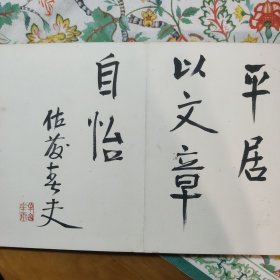 平居
以文章
自怡
佐藤春夫